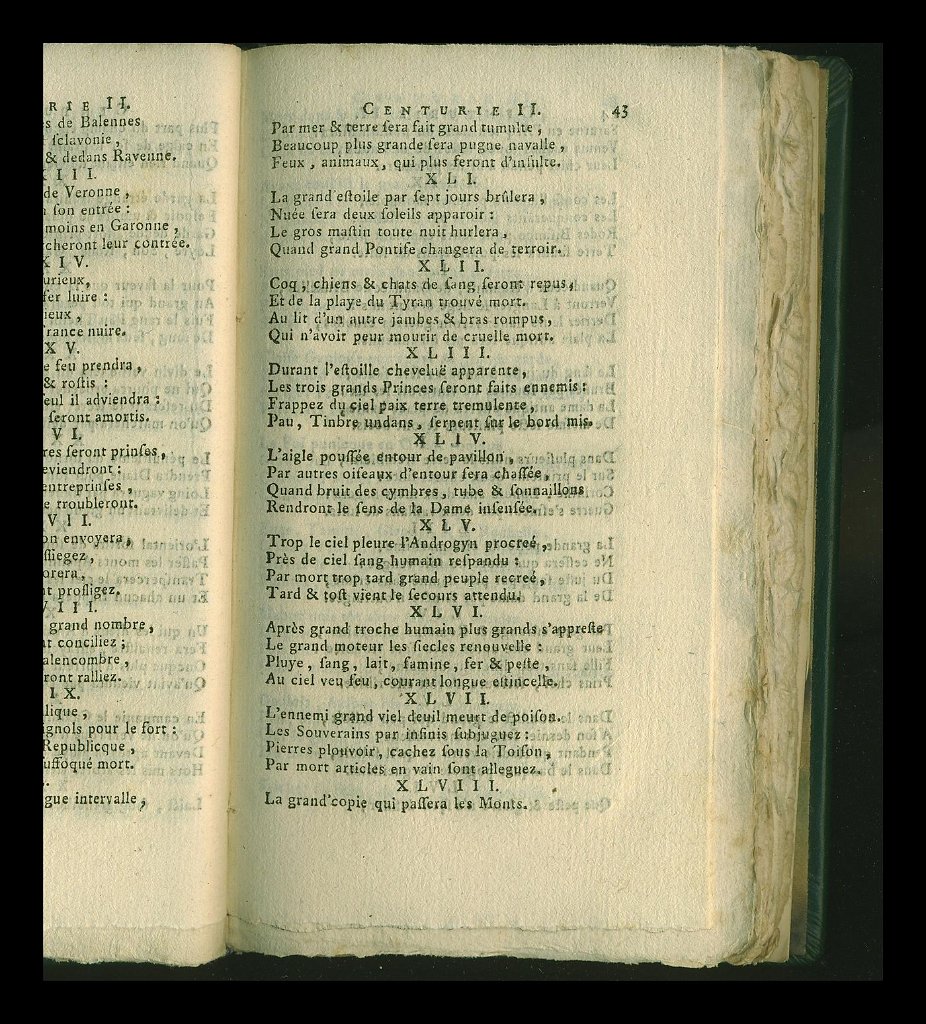 RIE II.
s de Balennes
ſclavonie,
& dedans Ravenne.
III.
de Veronne,
ſon entrée :
moins en Garonne,
cheront leur contrée.
XIV.
urieux,
fer luire :
ieux,
rance nuire.
XV.
e feu prendra,
& roſtis :
eul il adviendra :
ſeront amortis.
VI.
res ſeront prinſes,
eviendront :
entreprinſes,
e troubleront.
VII.
on envoyera,
ſſiegez,
orera,
nt profligez.
VIII.
grand nombre,
nt conciliez ;
alencombre,
ront ralliez.
IX.
lique,
ignols pour le fort :
Republicque,
uffoqué mort.
gue intervalle,
CENTURIE II. 43
Par mer & terre ſera fait grand tumulte,
Beaucoup plus grande ſera pugne navalle,
Feux, animaux, qui plus feront d'inſulte.
XLI.
La grand'eſtoile par ſept jours brûlera,
Nuée fera deux ſoleils apparoir :
Le gros maſtin toute nuit hurlera,
Quand grand Pontife changera de terroir.
XLII.
Coq, chiens & chats de ſang ſeront repus,
Et de la playe du Tyran trouvé mort.
Au lit d'un autre jambes & bras rompus,
Qui n'avoit peur mourir de cruelle mort.
XLIII.
Durant l'eſtoille cheveluë apparente,
Les trois grands Princes ſeront faits ennemis :
Frappez du ciel paix terre tremulente,
Pau, Tinbre undans, ſerpent ſur le bord mis.
XLIV.
L'aigle pouſſée entour de pavillon,
Par autres oiſeaux d'entour ſera chaſſée,
Quand bruit des cymbres, tube & ſonnaillons
Rendront le ſens de la Dame inſenſée.
XLV.
Trop le ciel pleure l'Androgyn procreé,
Près de ciel ſang humain reſpandu :
Par mort trop tard grand peuple recreé,
Tard & toſt vient le ſecours attendu.
XLVI.
Après grand troche humain plus grands s'appreſte
Le grand moteur les ſiecles renouvelle :
Pluye, ſang, lait, famine, fer & peſte,
Au ciel veu feu, courant longue eſtincelle.
XLVII.
L'ennemi grand viel deuil meurt de poiſon.
Les Souverains par infinis ſubjuguez :
Pierres plouvoir, cachez ſous la Toiſon,
Par mort articles en vain ſont alleguez.
XLVIII.
La grand'copie qui paſſera les Monts.